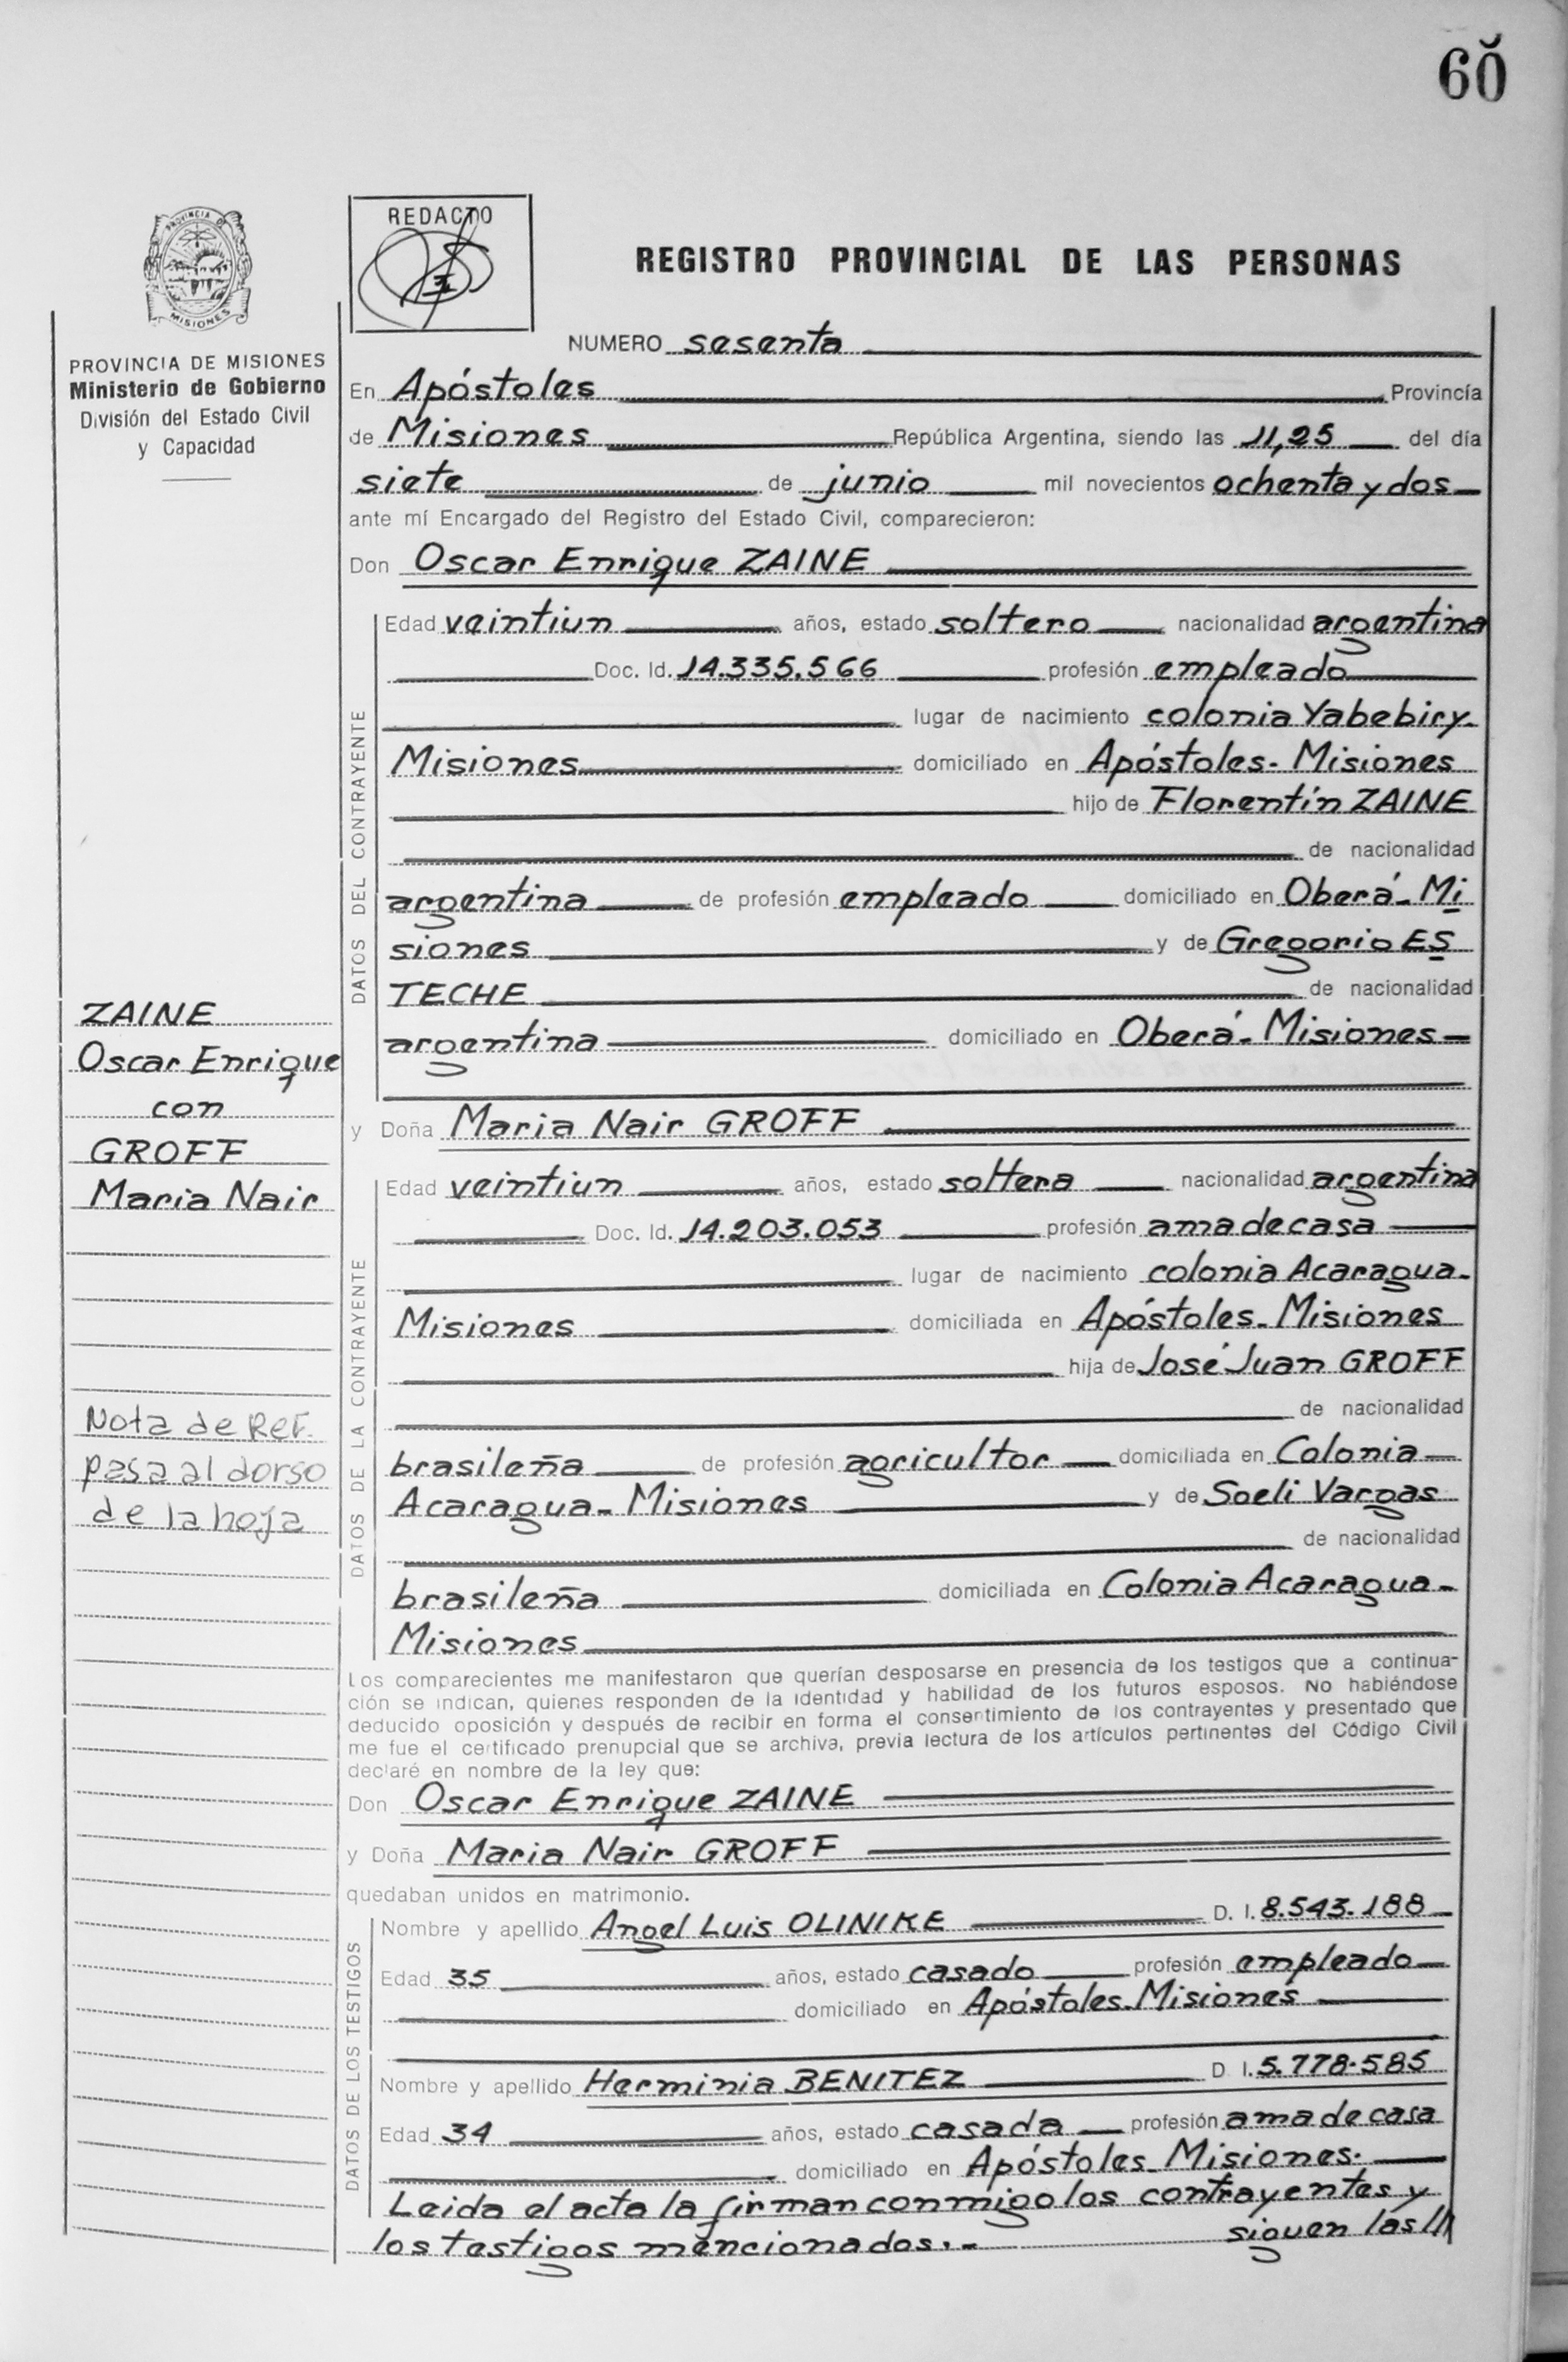 60
PROVINCIA DE
MISIONES
PROVINCIA DE MISIONES
Ministerio de Gobierno
División del Estado Civil
y Capacidad
REDACTO
REGISTRO PROVINCIAL DE LAS PERSONAS
NUMERO sesenta
En Apóstoles Provincía
de Misiones República Argentina, siendo las 11,25 del día
siete de junio mil novecientos ochenta y dos
ante mí Encargado del Registro del Estado Civil, comparecieron:
Don Oscar Enrique ZAINE
DATOS DEL CONTRAYENTE
Edad veintiun años, estado soltero nacionalidad argentina
Doc. Id. 14.335.566 profesión empleado
lugar de nacimiento colonia Yabebiry-
Misiones domiciliado en Apóstoles- Misiones
hijo de Florentín ZAINE
de nacionalidad
argentina de profesión empleado domiciliado en Oberá- Mi
siones y de Gregorio ES
TECHE de nacionalidad
argentina domiciliado en Oberá- Misiones-
y Doña Maria Nair GROFF
DATOS DE LA CONTRAYENTE
Edad veintiun años, estado soltera nacionalidad argentina
Doc. Id. 14.203.053 profesión ama de casa
lugar de nacimiento colonia Acaragua-
Misiones domiciliada en Apóstoles- Misiones
hija de José Juan GROFF
de nacionalidad
brasileña de profesión agricultor domiciliada en Colonia
Acaragua- Misiones y de Soeli Vargas
de nacionalidad
brasileña domiciliada en Colonia Acaragua-
Misiones
Los comparecientes me manifestaron que querían desposarse en presencia de los testigos que a continua-
ción se indican, quienes responden de la identidad y habilidad de los futuros esposos. No habiéndose
deducido oposición y después de recibir en forma el consentimiento de los contrayentes y presentado que
me fue el certificado prenupcial que se archiva, previa lectura de los artículos pertinentes del Código Civil
declaré en nombre de la ley que:
Don Oscar Enrique ZAINE
y Doña Maria Nair GROFF
quedaban unidos en matrimonio.
DATOS DE LOS TESTIGOS
Nombre y apellido Angel Luis OLINIKE D. I. 8.543.188
Edad 35 años, estado casado profesión empleado
domiciliado en Apóstoles- Misiones
Nombre y apellido Herminia BENITEZ D I. 5.778.585
Edad 34 años, estado casada profesión ama de casa
domiciliado en Apóstoles- Misiones.
Leida el acta la firman conmigo los contrayentes y
los testigos mencionados.- siguen las///
ZAINE
Oscar Enrique
con
GROFF
Maria Nair
Nota de Ref.
pasa al dorso
de la hoja